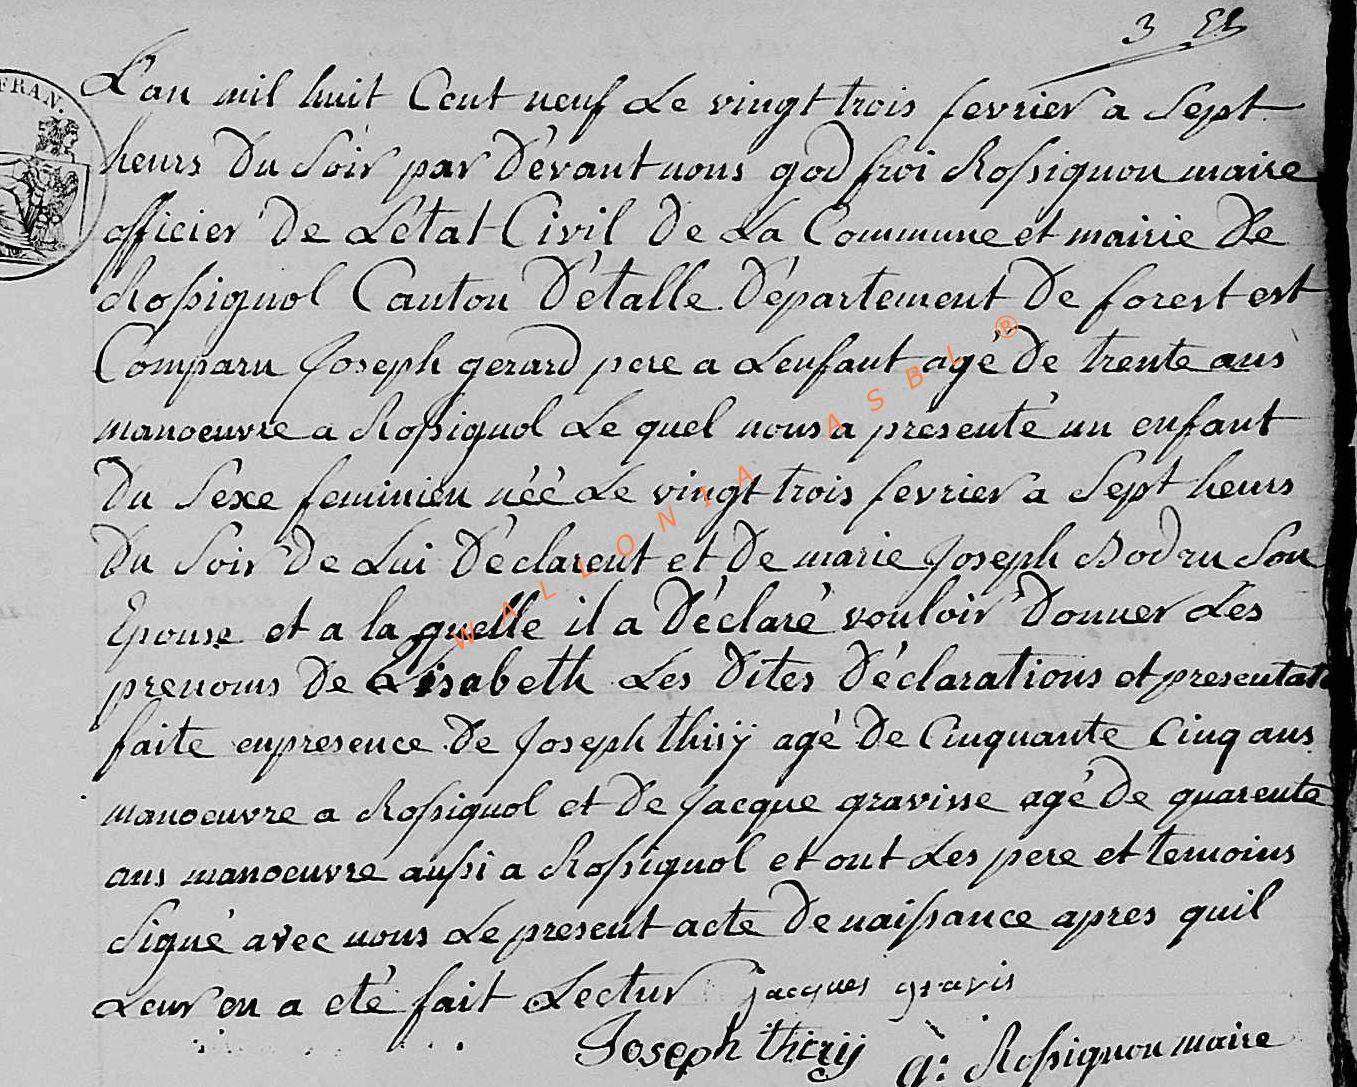 3
FRAN.
L'an mil huit Cent neuf Le vingt trois fevrier a Sept
heurs Du Soir par Devant nous godfroi Rossignon maire
officier De L'etat Civil De La Commune et mairie De
Rossignol Canton D'etalle Département De forest est
Comparu Joseph gerard pere a Lenfant agé De trente ans
manoeuvre a Rossignol Le quel nous a presenté un enfant
Du Sexe feminien néé Le vingt trois fevrier a Sept heurs
Du Soir De Lui Déclarent et De marie Joseph Bodru Son
Epouse et a la quelle il a Déclaré vouloir Donner Les
prenoms De Lisabeth Les Dites Déclarations et presentat
faite en presence De Joseph thirÿ agé De Cinquante Cinq ans
manoeuvre a Rossignol et De Jacque gravisse agé De quarente
ans manoeuvre aussi a Rossignol et ont Les pere et temoins
Signé avec nous Le present acte De naissance apres quil
Leur en a eté fait Lectur jacques gravis
Joseph thirij g: Rossignon maire
WALLONIA ASBL ®